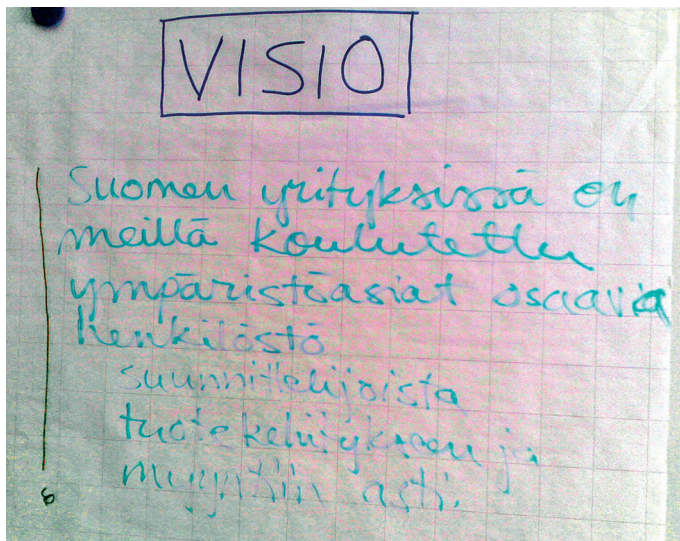 VISIO
Suomen yrityksissä on
meillä koulutettu
ympäristöasiat osaava
henkilöstö
suunnittelijoista
tuotekehitykseen ja
myyntiin asti.
6